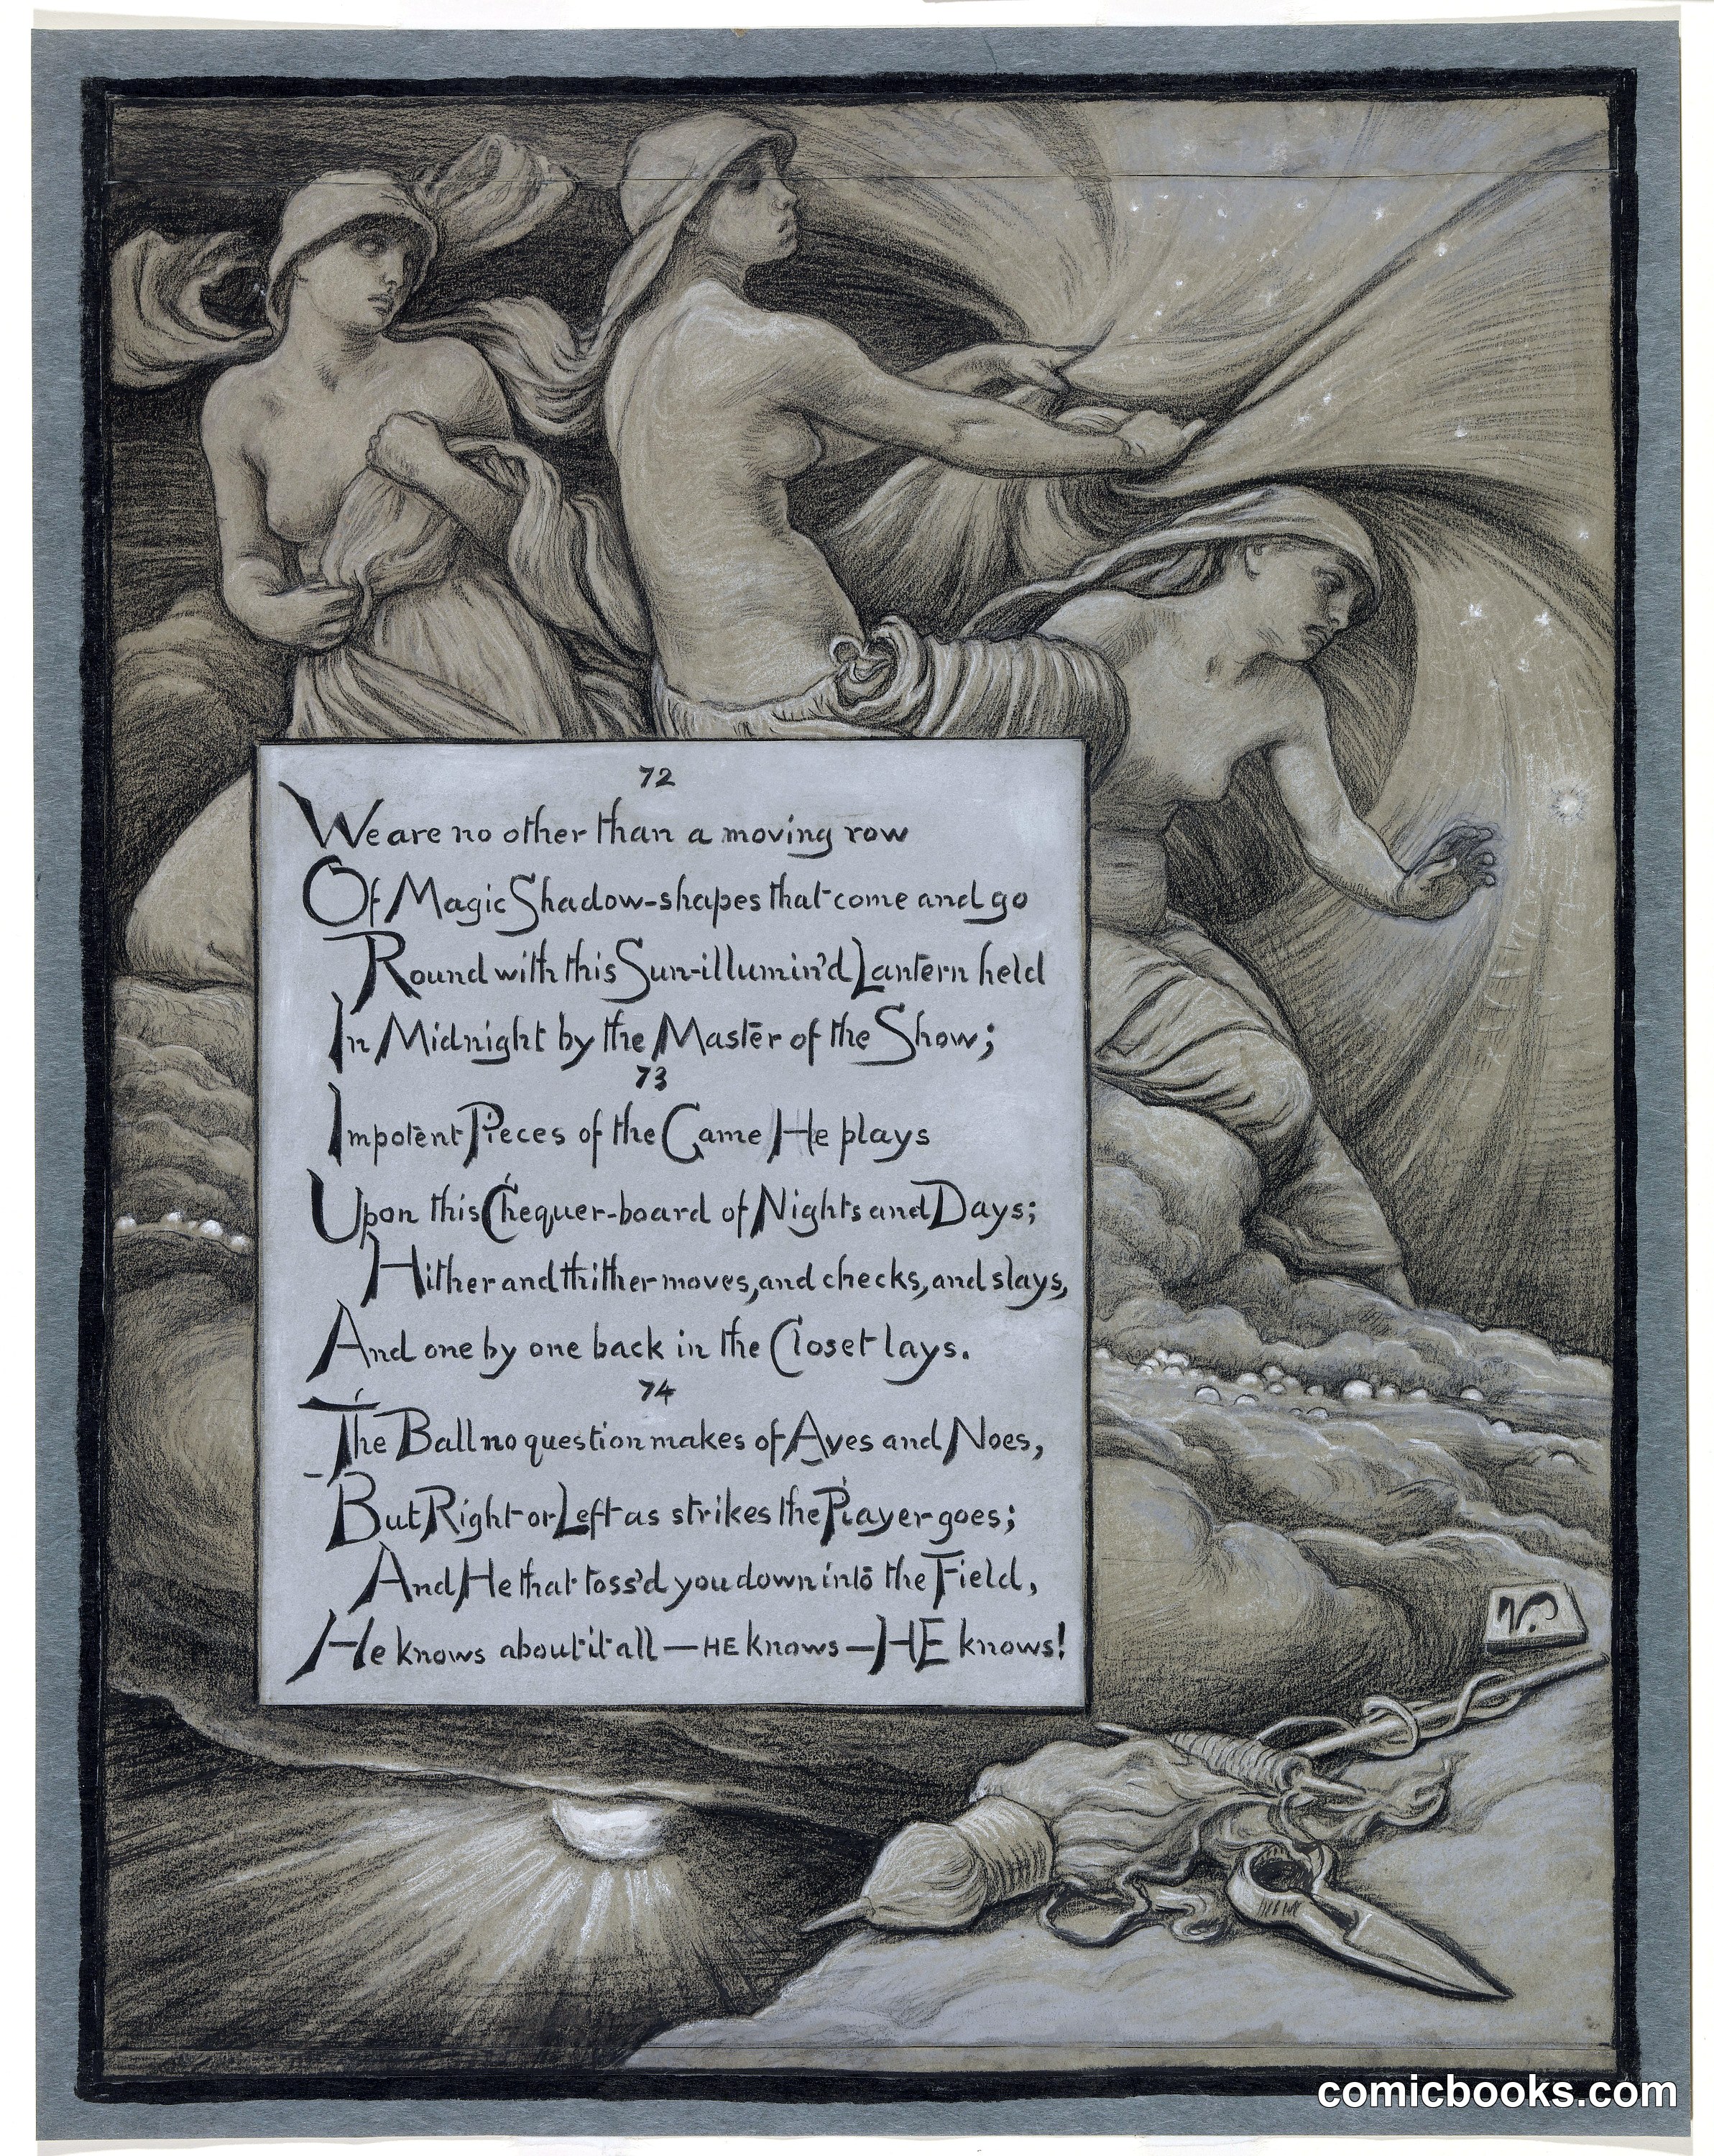 72
We are no other than a moving row
Of Magic Shadow-shapes that come and go
Round with this Sun-illumin'd Lantern held
In Midnight by the Master of the Show;
73
Impotent Pieces of the Game He plays
Upon this Chequer-board of Nights and Days;
Hither and thither moves, and checks, and slays,
And one by one back in the Closet lays.
74
The Ball no question makes of Ayes and Noes,
But Right or Left as strikes the Player goes;
And He that toss'd you down into the Field,
He knows about it all — HE knows — HE knows!
V
comicbooks.com